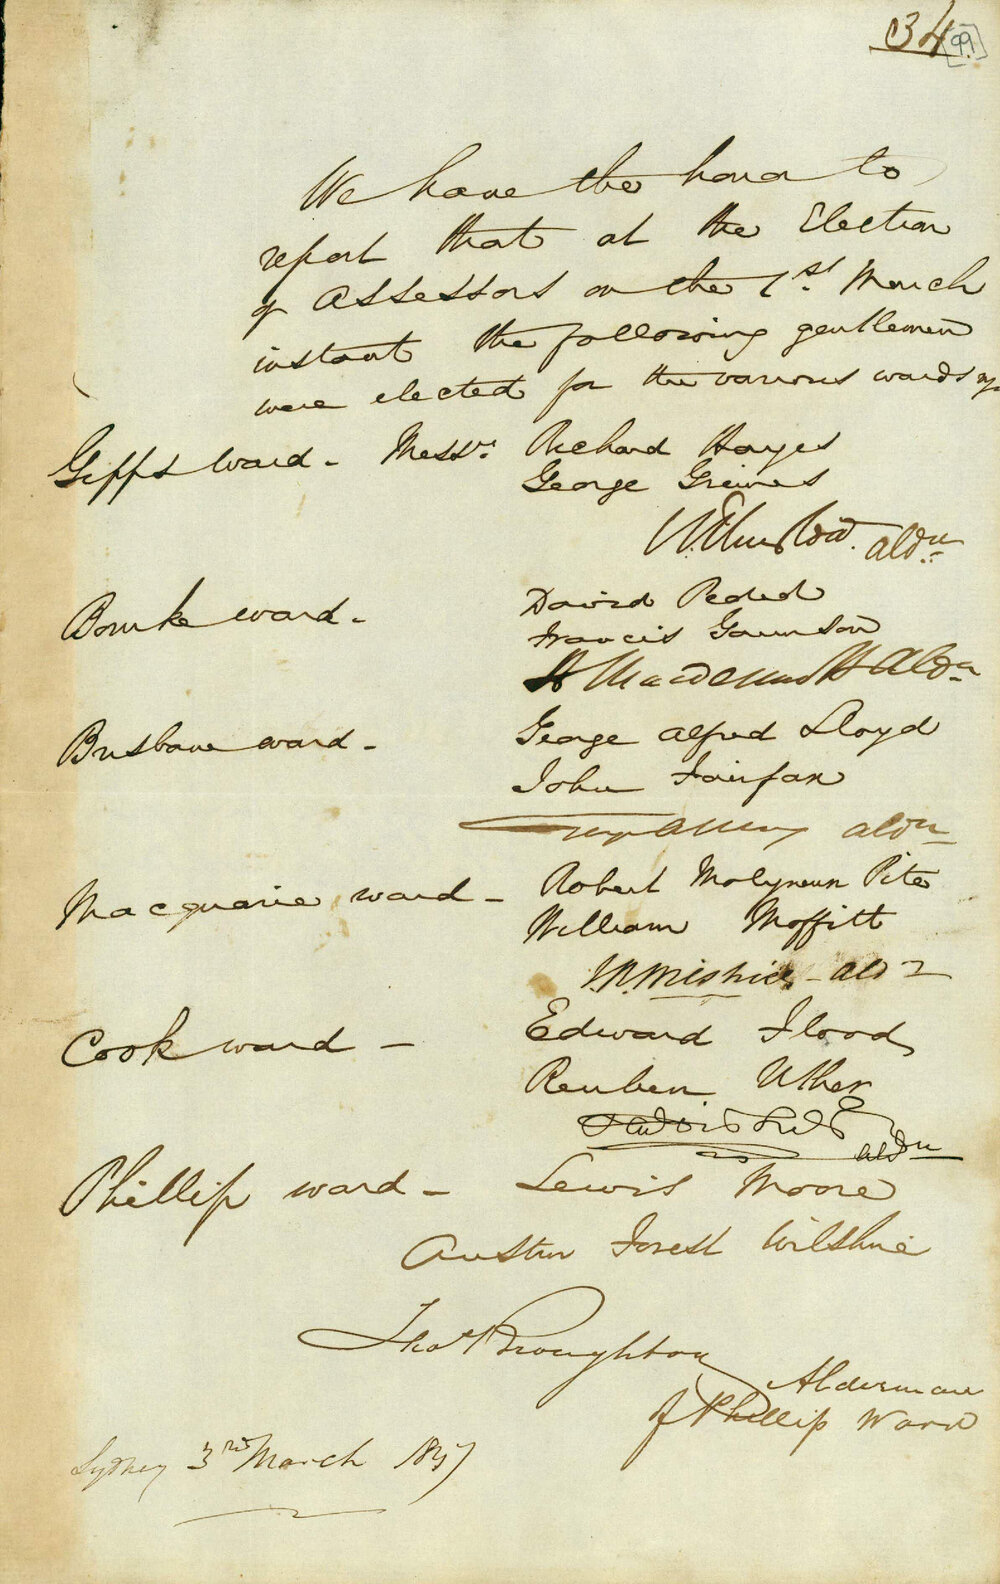 34
[99]
We have the honor to
report that at the Election
of Assessors on the 1st. March
instant the following gentlemen
were elected for the various wards
Gipps Ward - Messrs. Richard Hayes
George Grimes
Aldn.
Bourke ward - David Peded
Francis
Aldn
Brisbane ward - George Alfred Lloyd
John Fairfax
aldn
Macquarie ward - Robert Molyneux Pite
William Moffitt
aldn
Cook ward - Edward Flood
Reuben Uther
aldn
Phillip ward - Lewis Moore
Austin Forest Wilshire
Thos Broughton
Alderman
of Phillip Ward
Sydney 3rd March 1847